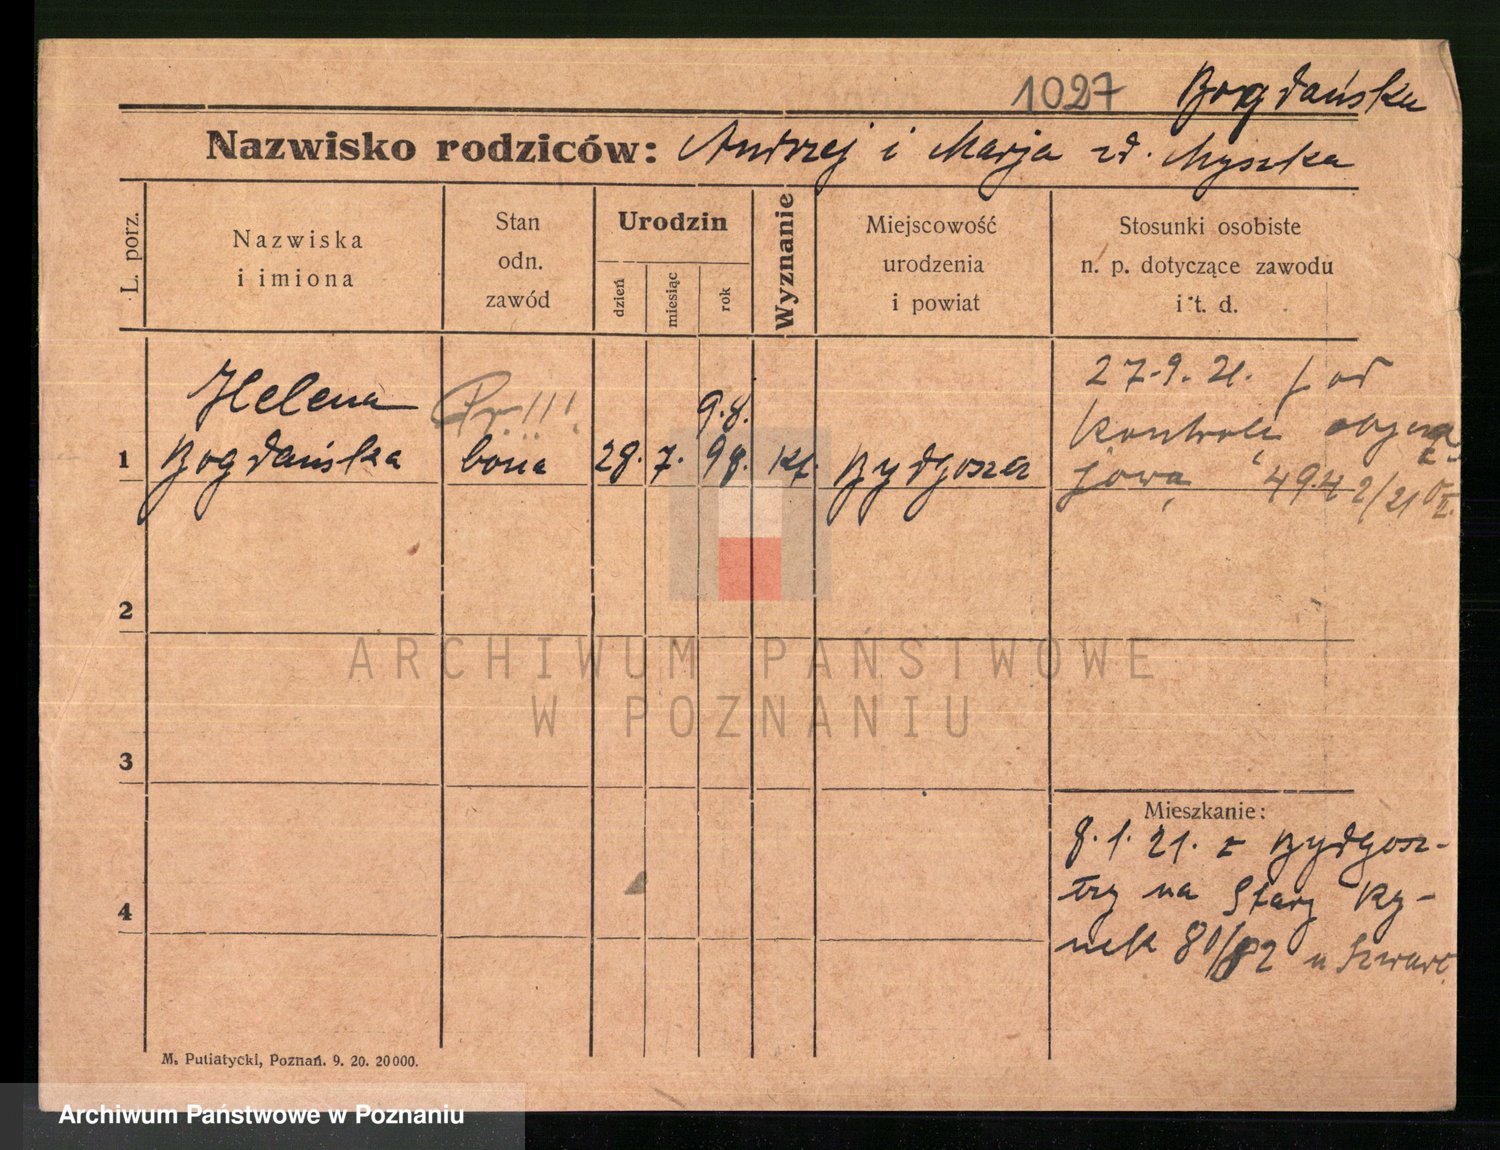 1027 Bogdańska
Nazwisko rodziców: Andrzej i Marja zd. Myszka
L. porz.
Nazwiska
i imiona
Stan
odn.
zawód
Urodzin
dzień
miesiąc
rok
Wyznanie
Miejscowość
urodzenia
i powiat
Stosunki osobiste
n. p. dotyczące zawodu
i t. d.
1
Helena
Bogdańska
bona
28. 7. 98. kt.
9.8.
Bydgoszcz
27.9.21. pod
kontrolę obycza
jową 4942/21
2
3
4
Mieszkanie:
8.1.21. z Bydgosz-
czy na Stary Ry-
nek 80/82 u Szwarc
M. Putiatycki, Poznań. 9. 20. 20000.
ARCHIWUM PAŃSTWOWE
W POZNANIU
Archiwum Państwowe w Poznaniu